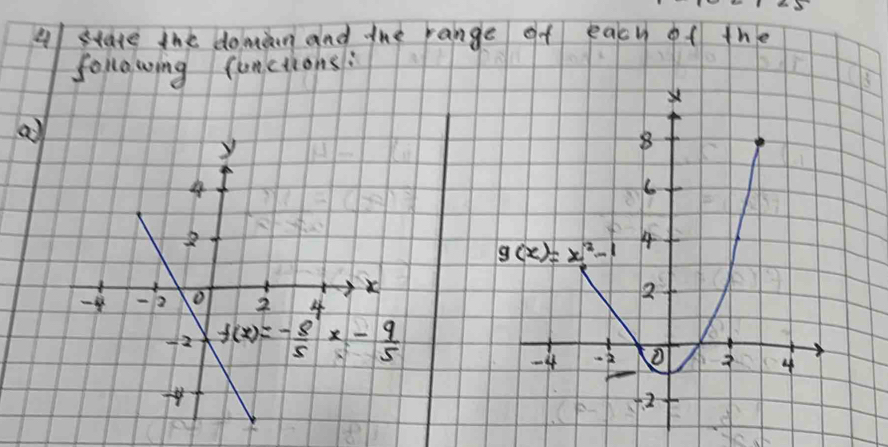 4) state the domain and the range of each of the
following functions:
a)
y
4
2
-4 -2 0 2 4 x
-2
f(x) = -8/5 x - 9/5
-4
x
8
6
4
g(x) = x² - 1
2
-4 -2 0 2 4
-2